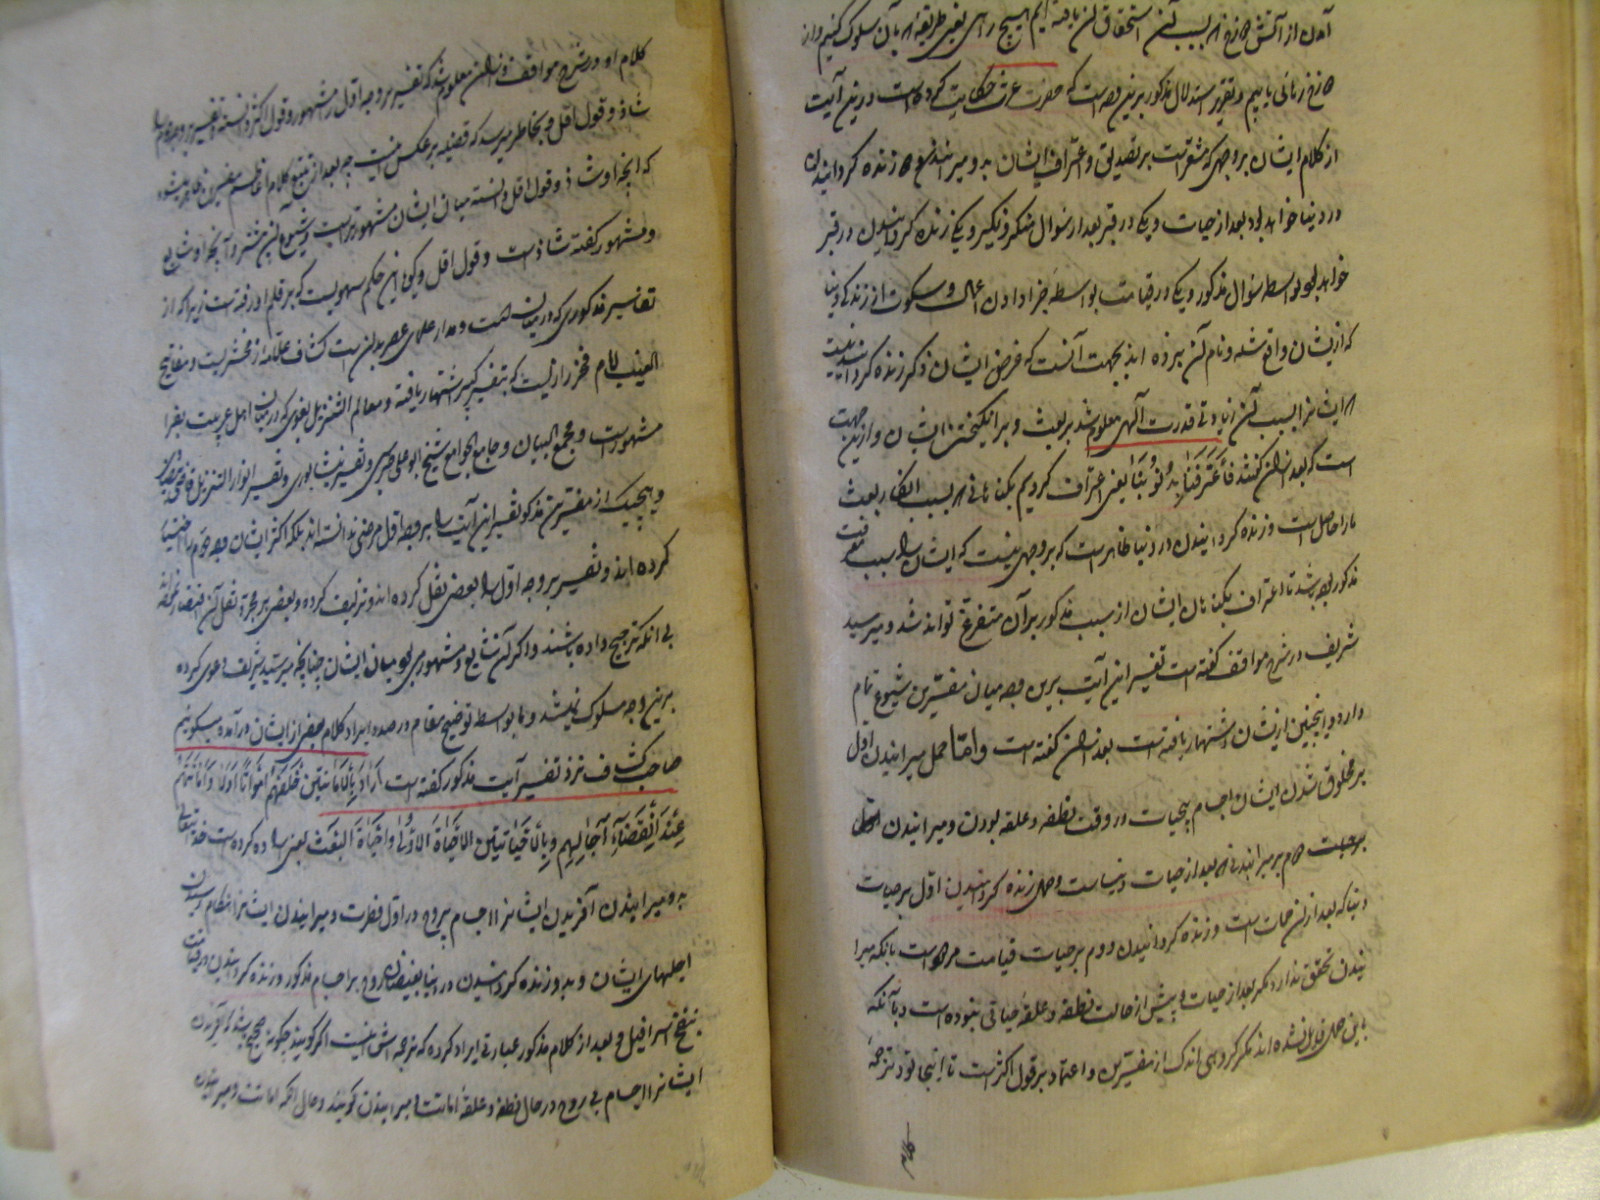 آمدن از آتش دوزخ که بسبب آن استحقاق آن یافته ایم هیچ راهی یعنی طریقه که بآن سلوک کنیم و از
دوزخ رهائی یابیم و تقریر استدلال مذکور برین وجه است که حضرت عزت حکایت کرده است درین آیت
از کلام ایشان بر وجهی که مشعر است بر تصدیق و اعتراف ایشان بدو میرانیدن و دو زنده کردانیدن
در دنیا خواهد بود بعد از حیات و یکی در قبر بعد از سؤال منکر و نکیر و یکی زنده کردانیدن در قبر
خواهد بود بواسطه سؤال مذکور و یکی در قیامت بواسطه جزا دادن اعمال و سکوت از زندکی دنیا
که از ایشان واقع شده و نام آن نبرده اند بجهت آنست که غرض ایشان ذکر زنده کردانیدنیست
که ایشانرا بسبب آن زیادتی قدرت الهی معلوم شد بر بعث و برانکیختن ایشان و ازین جهت
است که بعد از آن کفتند فاعترفنا بذنوبنا یعنی اعتراف کردیم بکناهانی که بسبب انکار بعث
ما را حاصل است و زنده کردانیدن در دنیا ظاهر است که بر وجهی نیست که ایشان را سبب معرفت
مذکور بوده باشد تا اعتراف بکناهان ایشان از سبب مذکور بر آن متفرع تواند شد و میر سید
شریف در شرح مواقف کفته است تفسیر این آیت برین وجه میان مفسرین شیوع تمام
دارد و اینچنین از ایشان اشتهار یافته است بعد از آن کفته است و اما حمل میرانیدن اول
بر مخلوق شدن ایشان اجسام بیحیات در وقت نطفه و علقه بودن و میرانیدن
بر میرانیدنی که بعد از حیات دنیاست و حمل زنده کردانیدن اول بر حیات
دنیا که بعد از آن ممات است و زنده کردانیدن دوم بر حیات قیامت مردود است بآنکه میرا
نیدن تحقق ندارد مکر بعد از حیات و پیش از حالت نطفه و علقه حیاتی نبوده است و بآنکه
باین حمل قایل نشده اند مکر کروهی اندک از مفسرین و اعتماد بر قول اکثر است تا اینجا بود ترجمه
کلام
کلام او در شرح مواقف و از آن معلوم شد که تفسیر بر وجه اول را مشهور و قول اکثر دانسته و تفسیر بر وجه دوم را
شاذ و قول اقل و بخاطر میرسد که قضیه بر عکس اینست چه بعد از تتبع کلام اعاظم مفسرین ظاهر میشود
که آنچه او شاذ و قول اقل دانسته میان ایشان مشهور تر است و شیوع آن بیشتر و آنچه او شایع
و مشهور کفته شاذ است و قول اقل و کویا این حکم سهویست که بر قلم او رفته است زیرا که از
تفاسیر مذکوری که در میان است و مدار علمای عصر بدان است کشاف علامه زمخشریست و مفاتیح
الغیب امام فخر رازیست که بتفسیر کبیر اشتهار یافته و معالم التنزیل بغوی که در میان اهل عربیت بفرا
مشهور است و مجمع البیان و جامع الجوامع شیخ ابو علی طبرسی و تفسیر نیشابوری و تفسیر انوار التنزیل قاضی بیضاوی
و هیچیک از مفسرین مذکور تفسیر این آیت را بر وجه اول مرضی ندانسته اند بلکه اکثر ایشان وجه دوم را اختیار
کرده اند و تفسیر بر وجه اول را بعضی نقل کرده اند و تزییف کرده و بعضی بر مجرد نقل آن اقتصار نموده
بی آنکه ترجیح داده باشند و اکر آن شایع و مشهور می بود میان ایشان چنانچه میر سید شریف دعوی کرده
برین وجه مسلوک نمیشد و ما بواسطه توضیح مقام در صدد ایراد کلام بعضی از ایشان در آمده میکوئیم
صاحب کشاف نزد تفسیر آیت مذکور کفته است اراد بالاماتتین خلقهم امواتا اولا و اماتتهم
عند انقضاء آجالهم و بالاحیاءتین الاحیاءة الاولی و احیاءة البعث یعنی اراده کرده است خدایتعالی
بدو میرانیدن آفریدن ایشانرا اجسام بیروح در اول فطرت و میرانیدن ایشانرا نزد انتظام رسیدن
اجلهای ایشان و بدو زنده کردانیدن در دنیا بفیضان روح بر اجسام مذکور و زنده کردانیدن در قیامت
بنفخ اسرافیل و بعد از کلام مذکور عبارتی ایراد کرده که ترجمه اش اینست اکر کویند چکونه صحیح باشد که آفریدن
ایشانرا اجسام بی روح در حال نطفه و علقه اماتت و میرانیدن کویند و حال آنکه اماتت و میرانیدن